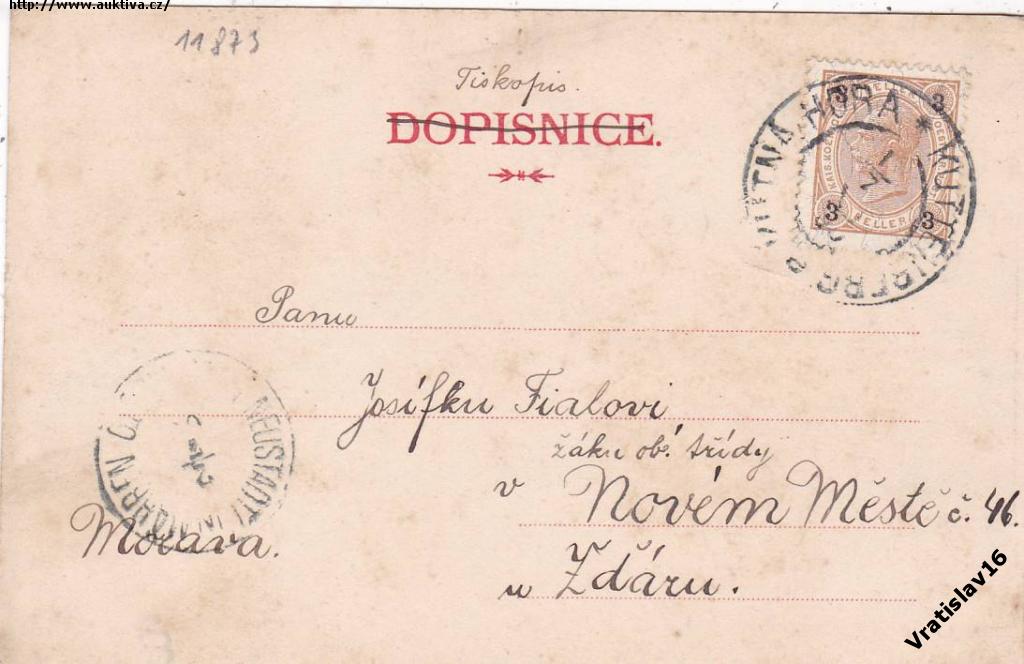 http://www.auktiva.cz/
11873
Tiskopis.
DOPISNICE.
KUTTNÁ HORA * KUTTENBERG
3 3
3 HELLER 3
Panu
Josífku Fialovi
žáku ob. třídy
v Novém Městě č. 46.
u Žďáru.
Morava.
NEUSTADTL IN MÄHREN
Vratislav16